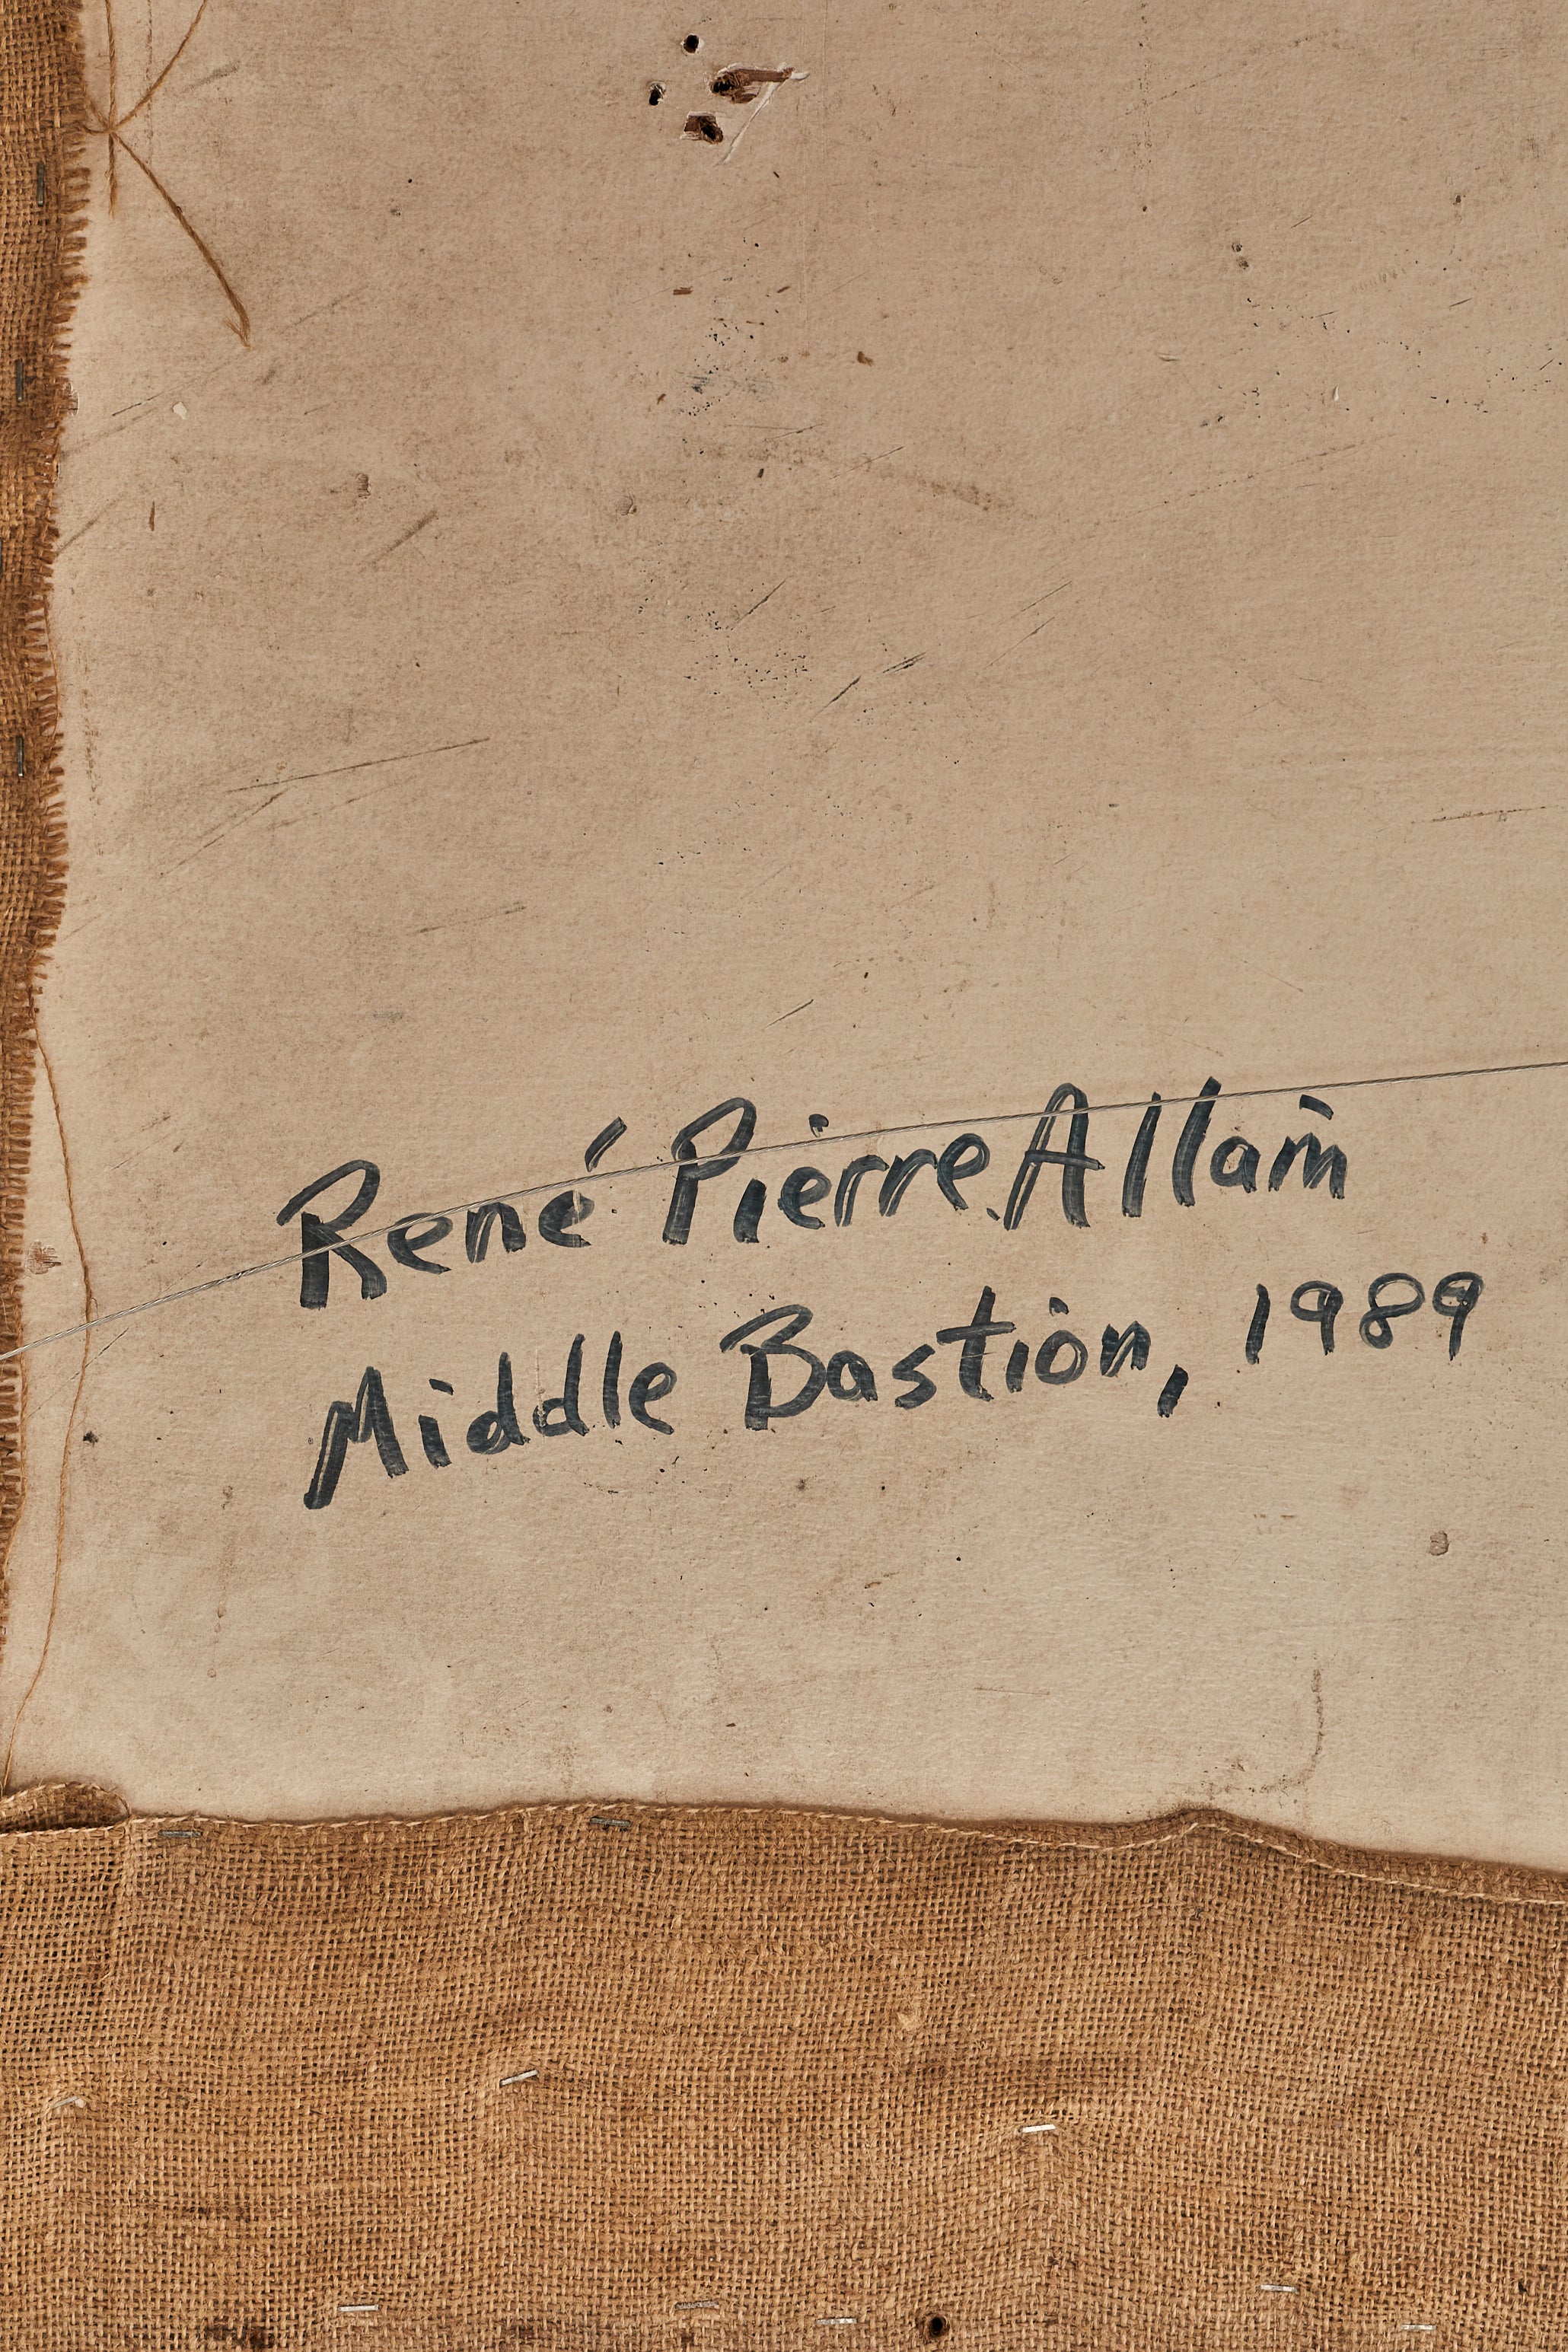 René Pierre Allain
Middle Bastion, 1989